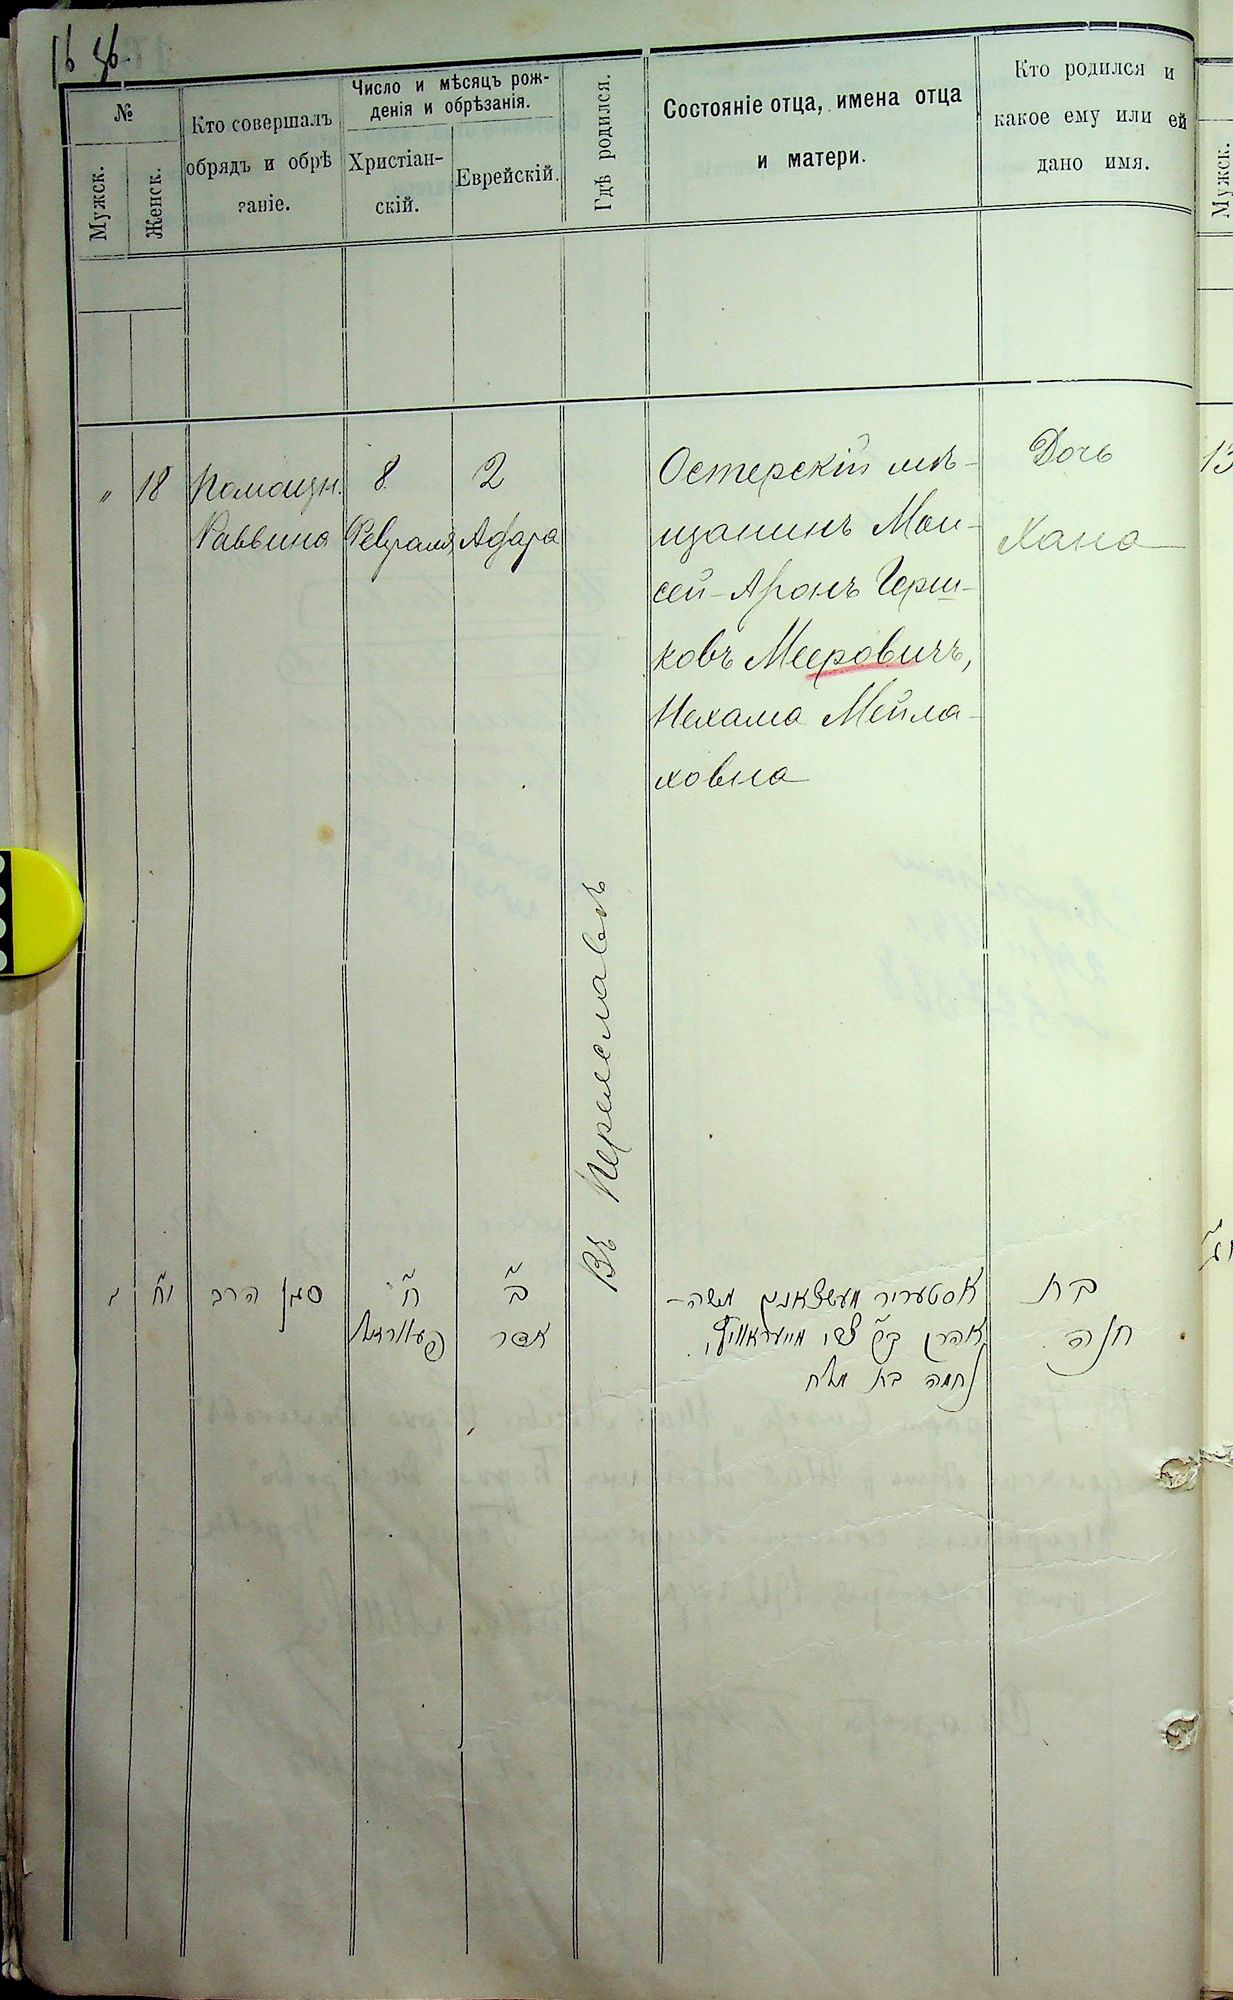 16 об.
№
Мужск.
Женск.
Кто совершалъ
обрядъ и обрѣ
заніе.
Число и мѣсяцъ рож-
денія и обрѣзанія.
Христіан-
скій.
Еврейскій.
Гдѣ родился.
Состояніе отца, имена отца
и матери.
Кто родился и
какое ему или ей
дано имя.
Мужск.
"
18
Помощн.
Раввина
8
Февраля
2
Адара
Въ Переяславлѣ
Остерскій мѣ-
щанинъ Мои-
сей-Аронъ Герш-
ковъ Мееровичъ,
Нехама Мейла-
ховна
Дочь
Хана
13
י״ח
סגן הרב
ח׳
פעווראל
ב׳
אדר
אסטעריר מעשצאנין משה-
אהרן ב״ר צבי מייעראוויץ,
נחמה בת מלח
בת
חנה